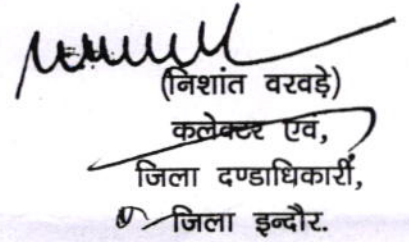 (निशांत वरवड़े)
कलेक्टर एवं,
जिला दण्डाधिकारीं,
जिला इन्दौर.